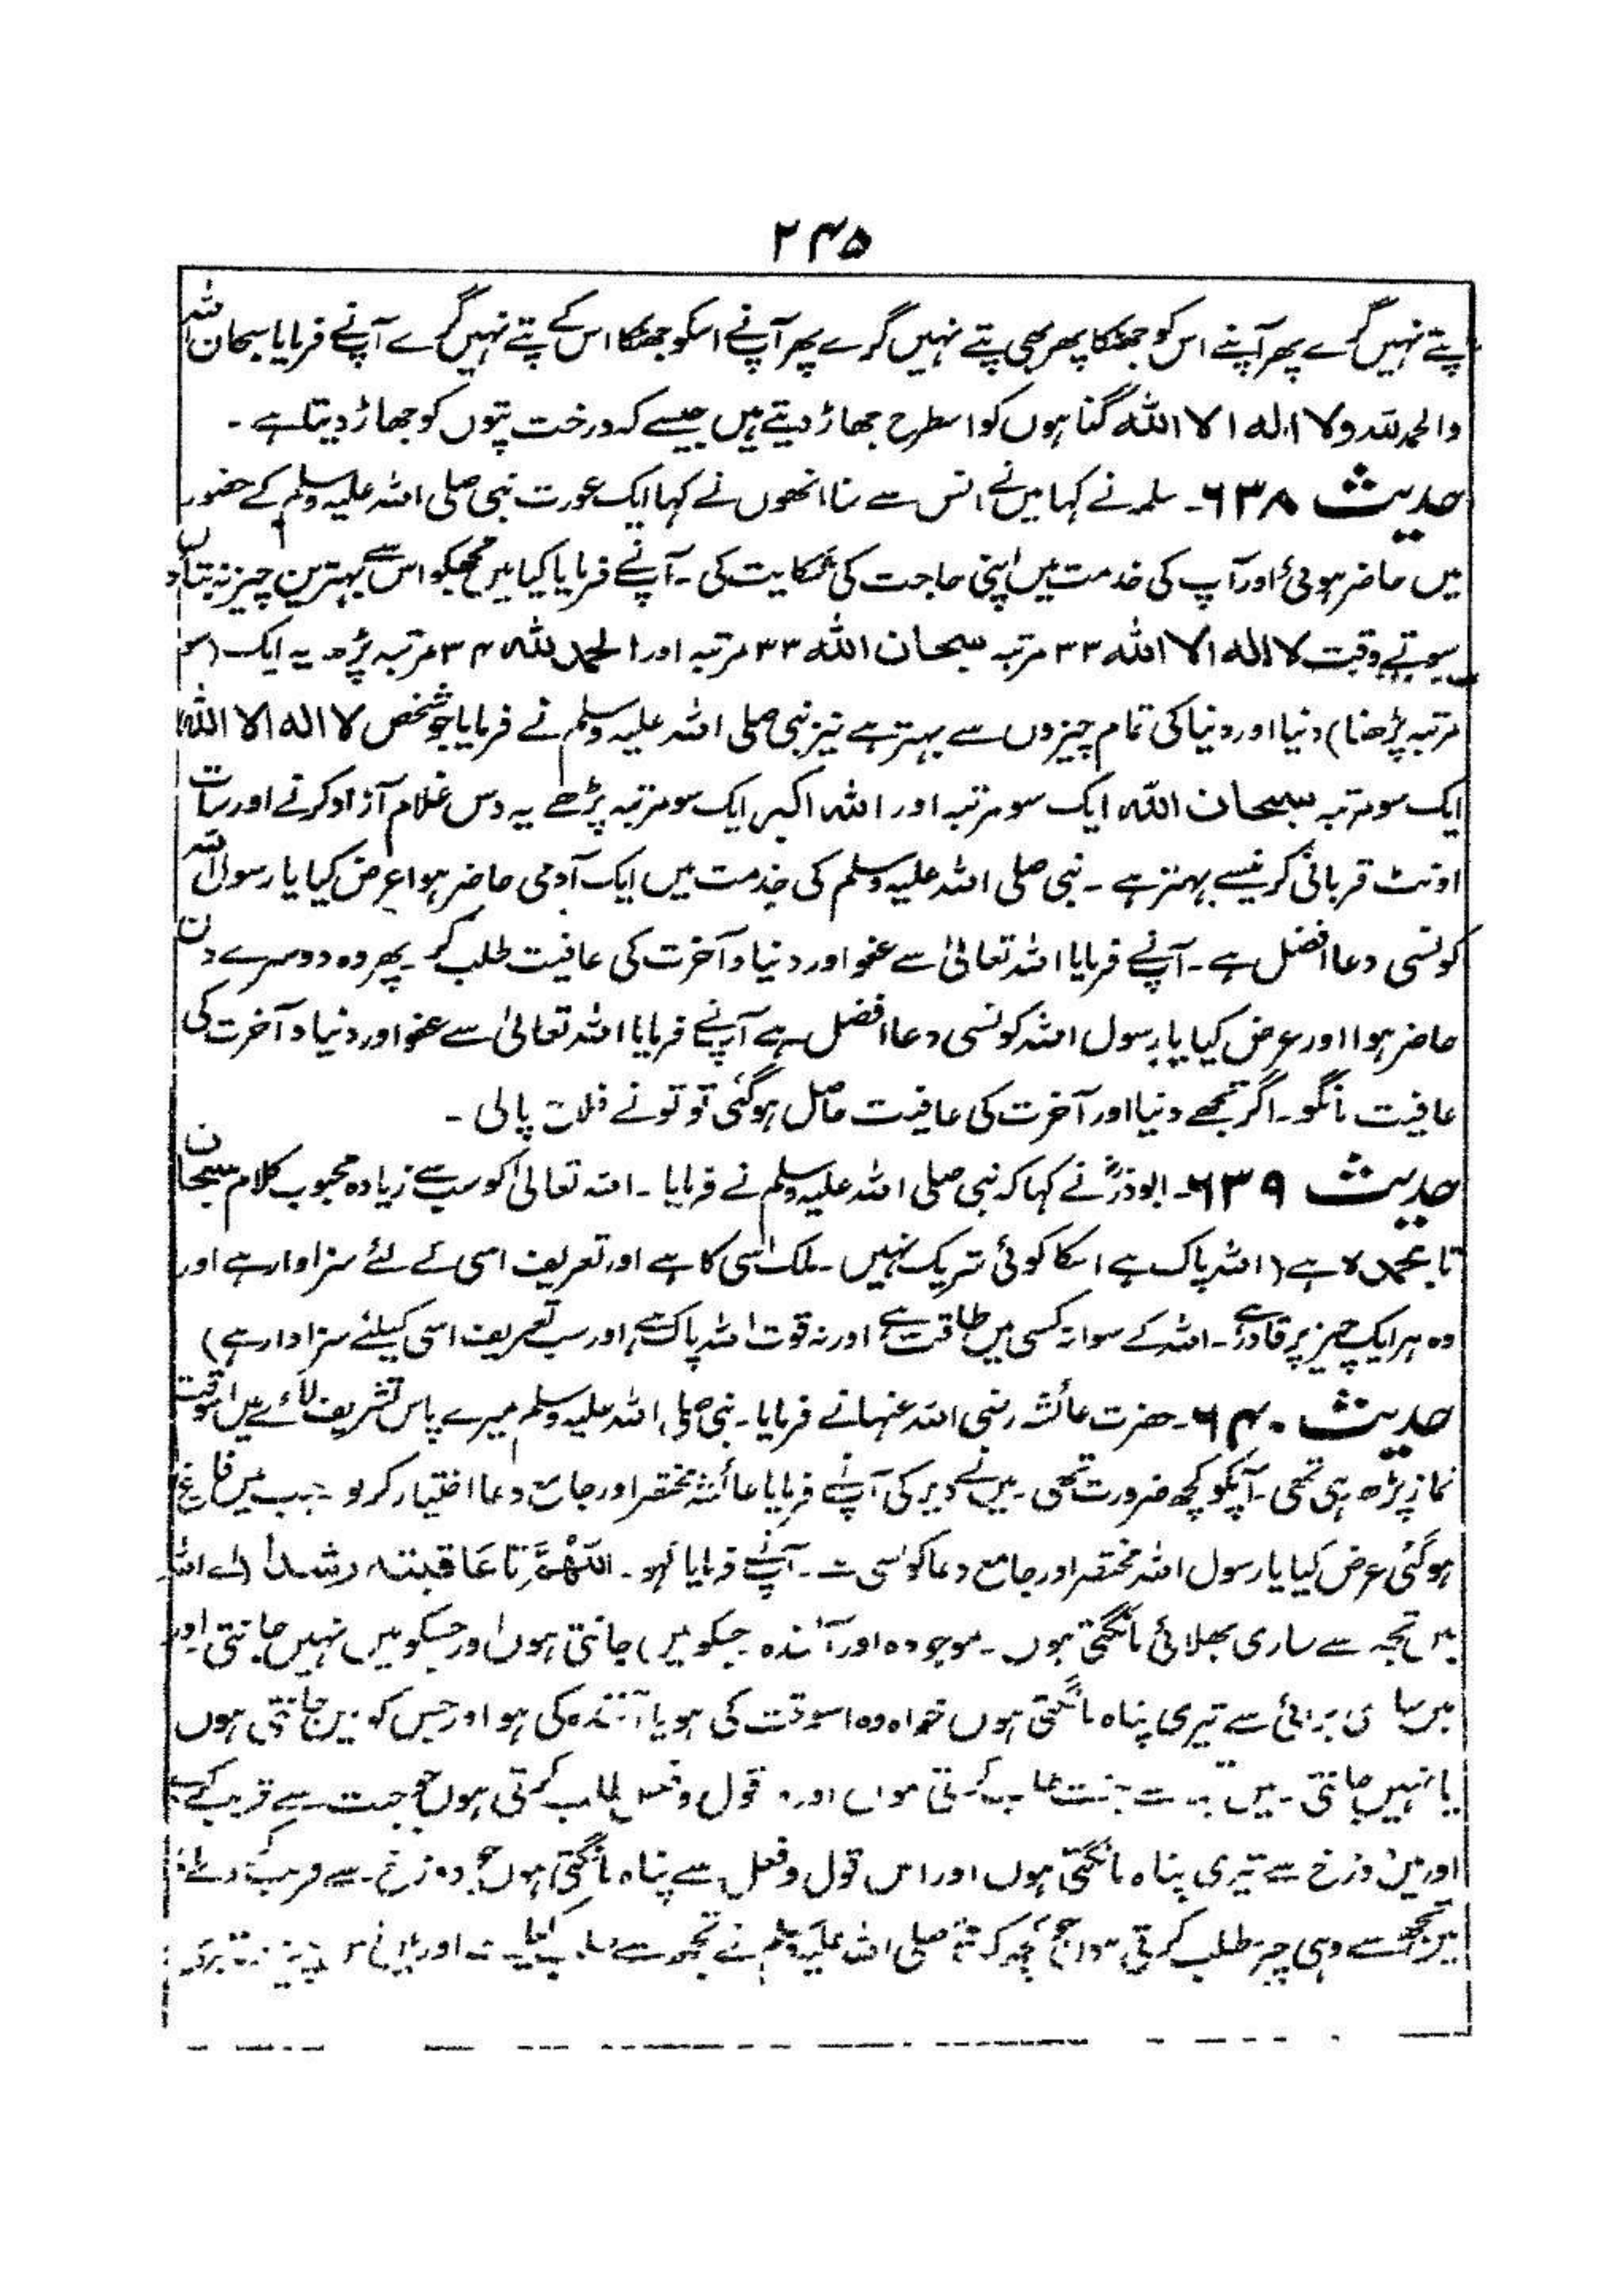 ۲۴۵
پتے نہیں گرے پھر آپنے اس کو جھٹکا پھر بھی پتے نہیں گرے پھر آپنے اسکو جھٹکا اس کے پتے نہیں گرے آپنے فرمایا سبحان اللہ
والحمد للہ ولا الہ الا اللہ گناہوں کو اسطرح جھاڑ دیتے ہیں جیسے کہ درخت پتوں کو جھاڑ دیتا ہے ۔
حدیث ۶۳۸۔ سلمہ نے کہا میں نے انس سے سنا انھوں نے کہا ایک عورت نبی صلی اللہ علیہ وسلم کے حضور
میں حاضر ہوئی اور آپ کی خدمت میں اپنی حاجت کی شکایت کی ۔ آپنے فرمایا کیا میں تجھکو اس سے بہترین چیز نہ بتا دوں
سوتے وقت لا الہ الا اللہ ۳۳ مرتبہ سبحان اللہ ۳۳ مرتبہ اور الحمد للہ ۳۴ مرتبہ پڑھ یہ ایک (سو
مرتبہ پڑھنا) دنیا اور دنیا کی تمام چیزوں سے بہتر ہے نیز نبی صلی اللہ علیہ وسلم نے فرمایا جو شخص لا الہ الا اللہ
ایک سو مرتبہ سبحان اللہ ایک سو مرتبہ اور اللہ اکبر ایک سو مرتبہ پڑھے یہ دس غلام آزاد کرنے اور سات
اونٹ قربانی کرنیسے بہتر ہے ۔ نبی صلی اللہ علیہ وسلم کی خدمت میں ایک آدمی حاضر ہوا عرض کیا یا رسول اللہ
کونسی دعا افضل ہے ۔ آپنے فرمایا اللہ تعالیٰ سے عفو اور دنیا و آخرت کی عافیت طلب کر ۔ پھر وہ دوسرے دن
حاضر ہوا اور عرض کیا یا رسول اللہ کونسی دعا افضل ہے آپنے فرمایا اللہ تعالیٰ سے عفو اور دنیا و آخرت کی
عافیت مانگو ۔ اگر تجھے دنیا اور آخرت کی عافیت حاصل ہوگئی تو تونے فلاح پالی ۔
حدیث ۶۳۹۔ ابوذرؓ نے کہا کہ نبی صلی اللہ علیہ وسلم نے فرمایا ۔ اللہ تعالیٰ کو سب سے زیادہ محبوب کلام سبحان
تا بحمدہ ہے (اللہ پاک ہے اسکا کوئی شریک نہیں ۔ ملک اسی کا ہے اور تعریف اسی کے لئے سزاوار ہے اور
وہ ہر ایک چیز پر قادر ہے ۔ اللہ کے سوا نہ کسی میں طاقت ہے اور نہ قوت اللہ پاک ہے اور سب تعریف اسی کیلئے سزاوار ہے)
حدیث ۶۴۰۔ حضرت عائشہ رضی اللہ عنہا نے فرمایا ۔ نبی صلی اللہ علیہ وسلم میرے پاس تشریف لائے میں اسوقت
نماز پڑھ رہی تھی ۔ آپکو کچھ ضرورت تھی ۔ میں نے دیر کی آپنے فرمایا عائشہ مختصر اور جامع دعا اختیار کر لو ۔ جب میں فارغ
ہوگئی عرض کیا یا رسول اللہ مختصر اور جامع دعا کونسی ہے ۔ آپنے فرمایا کہو ۔ اللھم تا عاقبتہ رشدا (اے اللہ
میں تجھ سے ساری بھلائی مانگتی ہوں ۔ موجودہ اور آئندہ جسکو میں جانتی ہوں اور جسکو میں نہیں جانتی اور
میں ساری برائی سے تیری پناہ مانگتی ہوں خواہ وہ اسوقت کی ہو یا آئندہ کی ہو اور جس کو میں جانتی ہوں
یا نہیں جانتی ۔ میں تجھ سے جنت طلب کرتی ہوں اور وہ قول و فعل طلب کرتی ہوں جو جنت سے قریب کرے
اور میں دوزخ سے تیری پناہ مانگتی ہوں اور اس قول و فعل سے پناہ مانگتی ہوں جو دوزخ سے قریب کر دے
میں تجھ سے وہی چیز طلب کرتی ہوں جو محمد صلی اللہ علیہ وسلم نے تجھ سے طلب اور